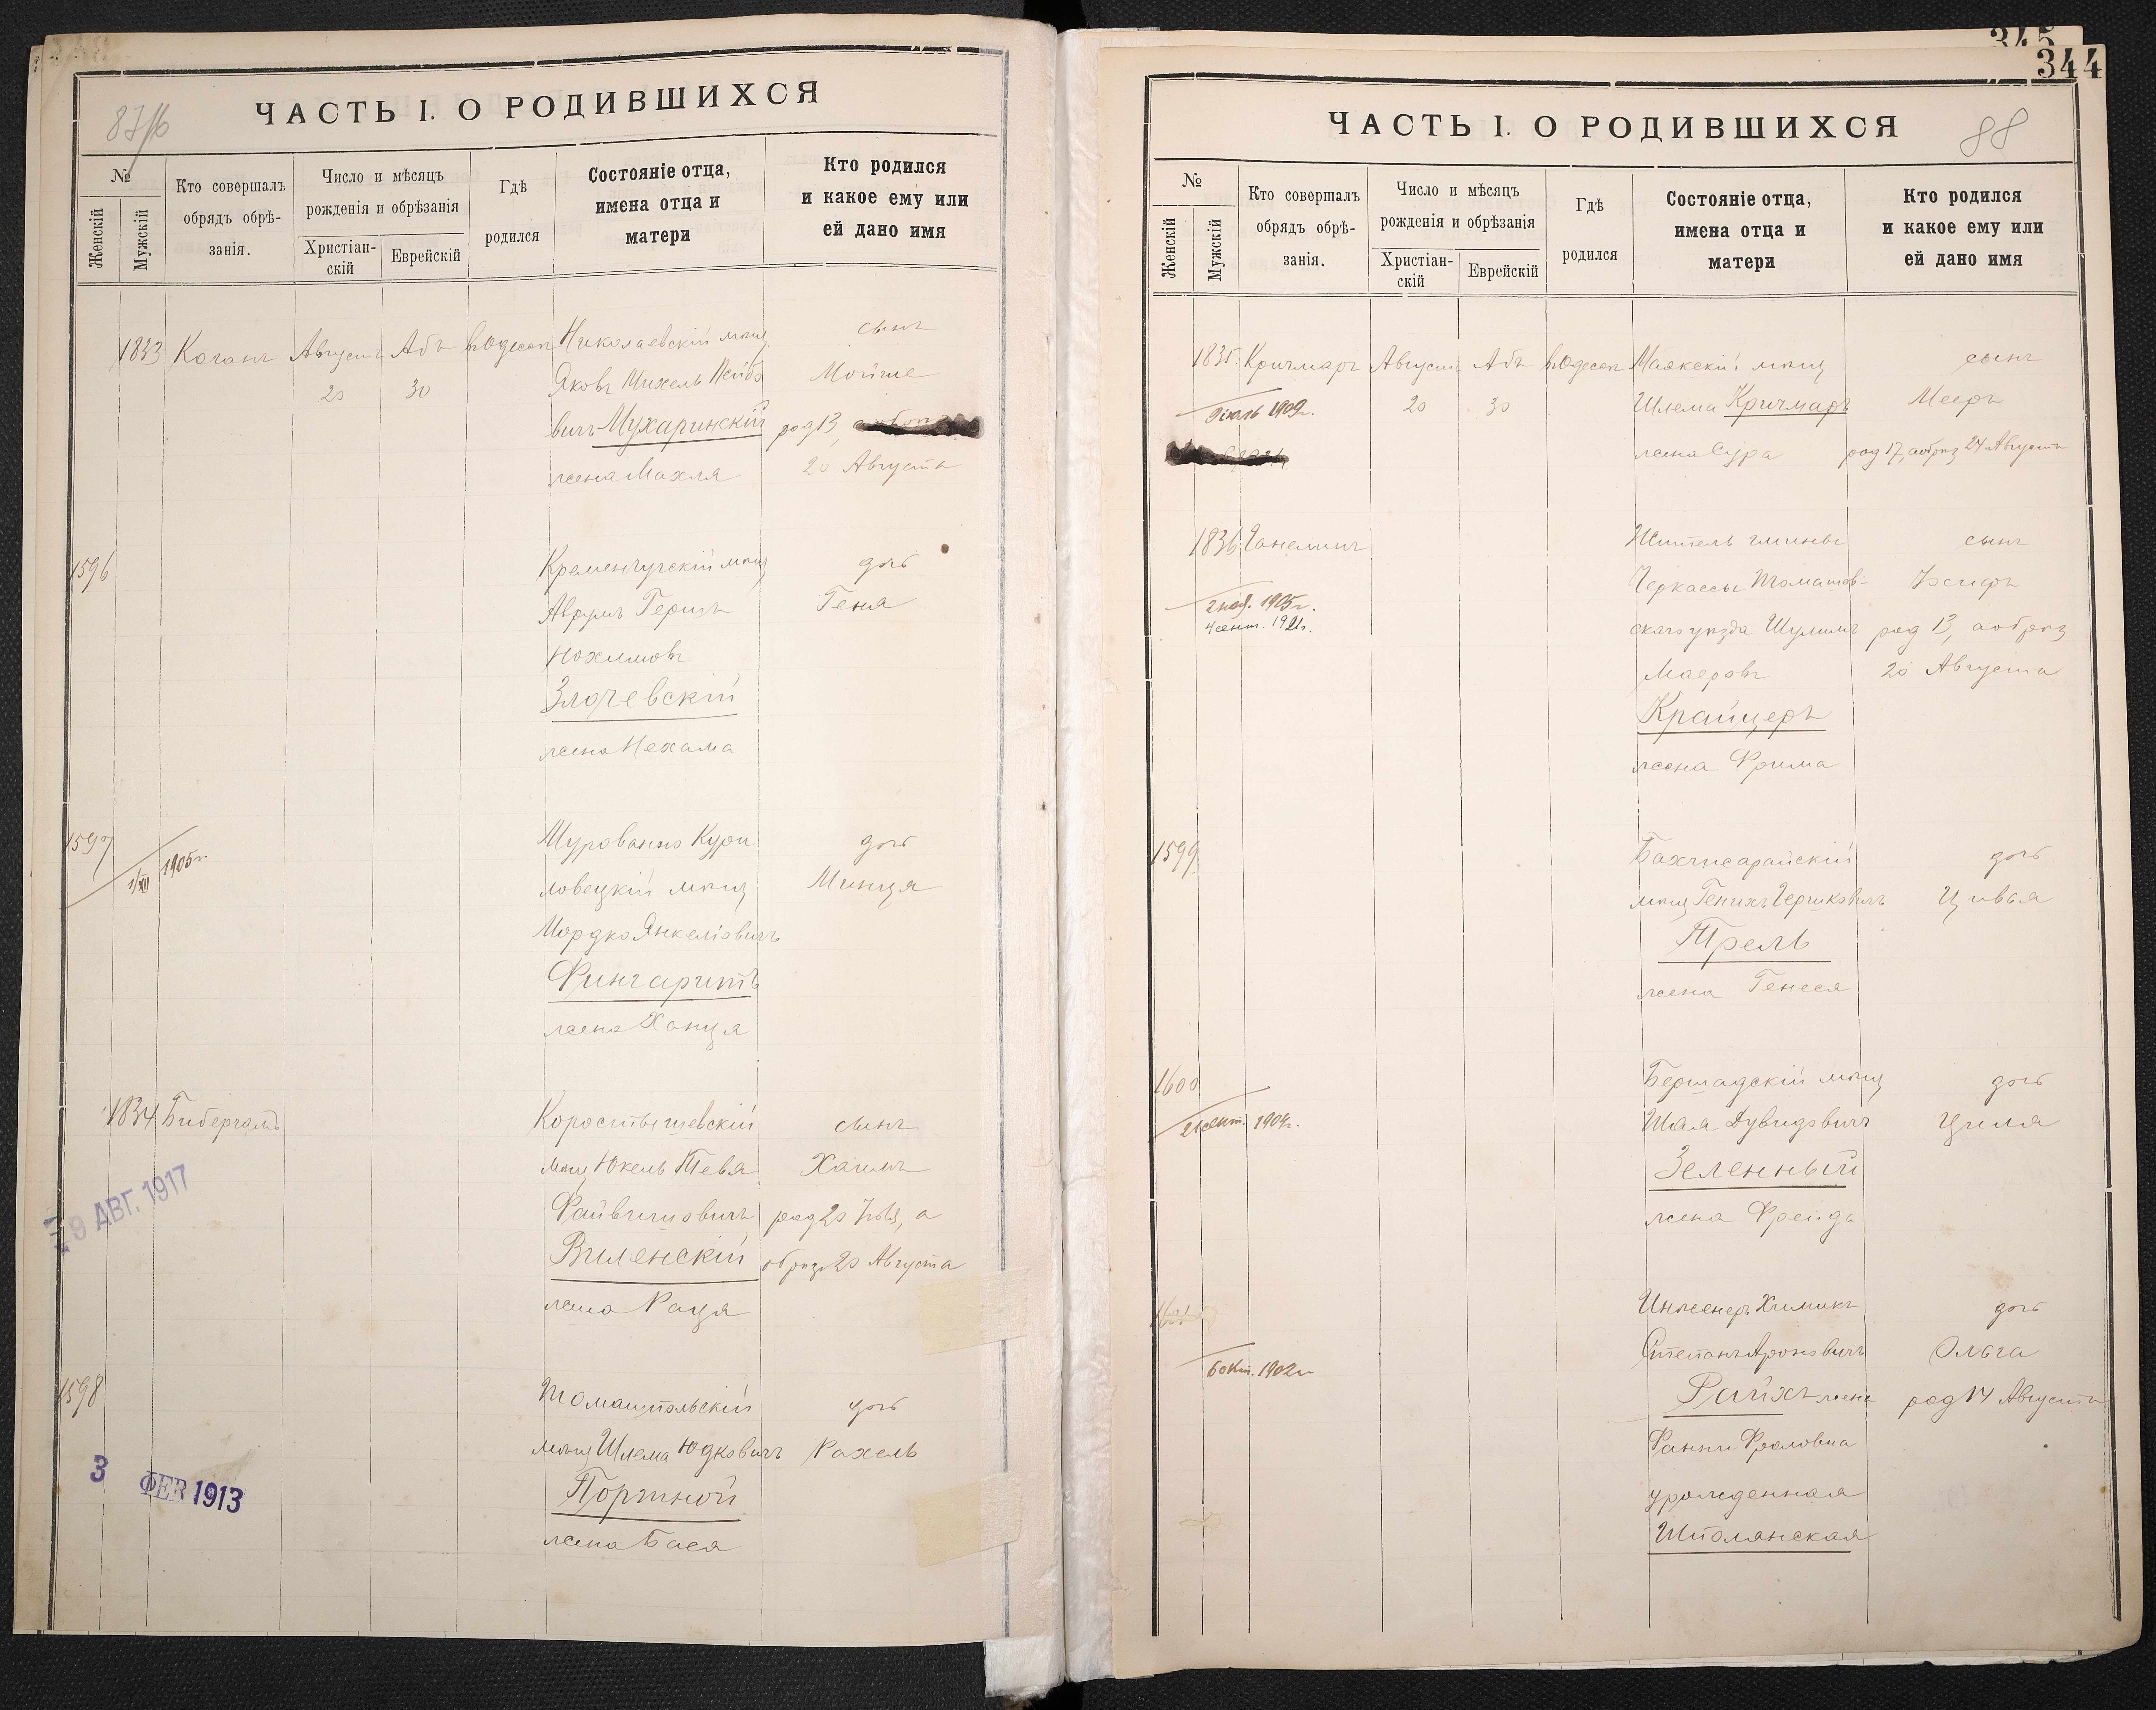 ЧАСТЬ I. О РОДИВШИХСЯ
№
Женскій
Мужскій
Кто совершалъ
обрядъ обрѣ-
занія.
Число и мѣсяцъ
рожденія и обрѣзанія
Христіан-
скій
Еврейскій
Гдѣ
родился
Состояніе отца,
имена отца и
матери
Кто родился
и какое ему или
ей дано имя
1833 Коганъ Августъ Абъ въ Одессѣ Николаевскій мѣщ сынъ
20 30 Яковъ Михель Лейбо Мойше
вичъ Мухаринскій род 13,
жена Махля 20 Августа
1596 Кременчугскій мѣщ дочь
Аврумъ Гершъ Геня
Нохимовъ
Злочевскій
жена Нехама
1597 Мурованно Кури дочь
1/XII 1905г.
ловецкій мѣщ Минця
Мордко Янкеліовичъ
Фингаритъ
жена Ханця
1834 Коростышевскій сынъ
мѣщ Юкель Тевя Хаимъ
Файвишовичъ род 20 Іюля, а
Виленскій обрѣз 20 Августа
жена Раця
9 АВГ. 1917
1598 Томашпольскій дочь
мѣщ Шлема Юдковичъ Рахель
Портной
жена Бася
3 ФЕВ 1913
344
345
ЧАСТЬ I. О РОДИВШИХСЯ
88
№
Женскій
Мужскій
Кто совершалъ
обрядъ обрѣ-
занія.
Число и мѣсяцъ
рожденія и обрѣзанія
Христіан-
скій
Еврейскій
Гдѣ
родился
Состояніе отца,
имена отца и
матери
Кто родился
и какое ему или
ей дано имя
1835 Кричмаръ Августъ Абъ въ Одессѣ Маякскій мѣщ сынъ
1909г. 20 30 Шлема Кричмаръ Мееръ
жена Сура род 17, а обрѣз 24 Августа
1836 Ганелинъ Житель гмины сынъ
Черкассы Томашов- Іосифъ
1905г.
4 сент. 1921г.
скаго уѣзда Шулимъ род 13, а обрѣз
Маеровъ 20 Августа
Крайцеръ
жена Фрима
1599 Бахчисарайскій дочь
мѣщ Генихъ Гершковичъ Цивья
Трель
жена Генеся
1600 Бершадскій мѣщ дочь
сент. 1904г. Шая Дувидовичъ Циля
Зеленный
жена Фрейда
Инженеръ Химикъ дочь
Степанъ Ароновичъ Ольга
6 окт. 1902г Райхъ жена род 14 Августа
Фанни
урожденная
Шполянская